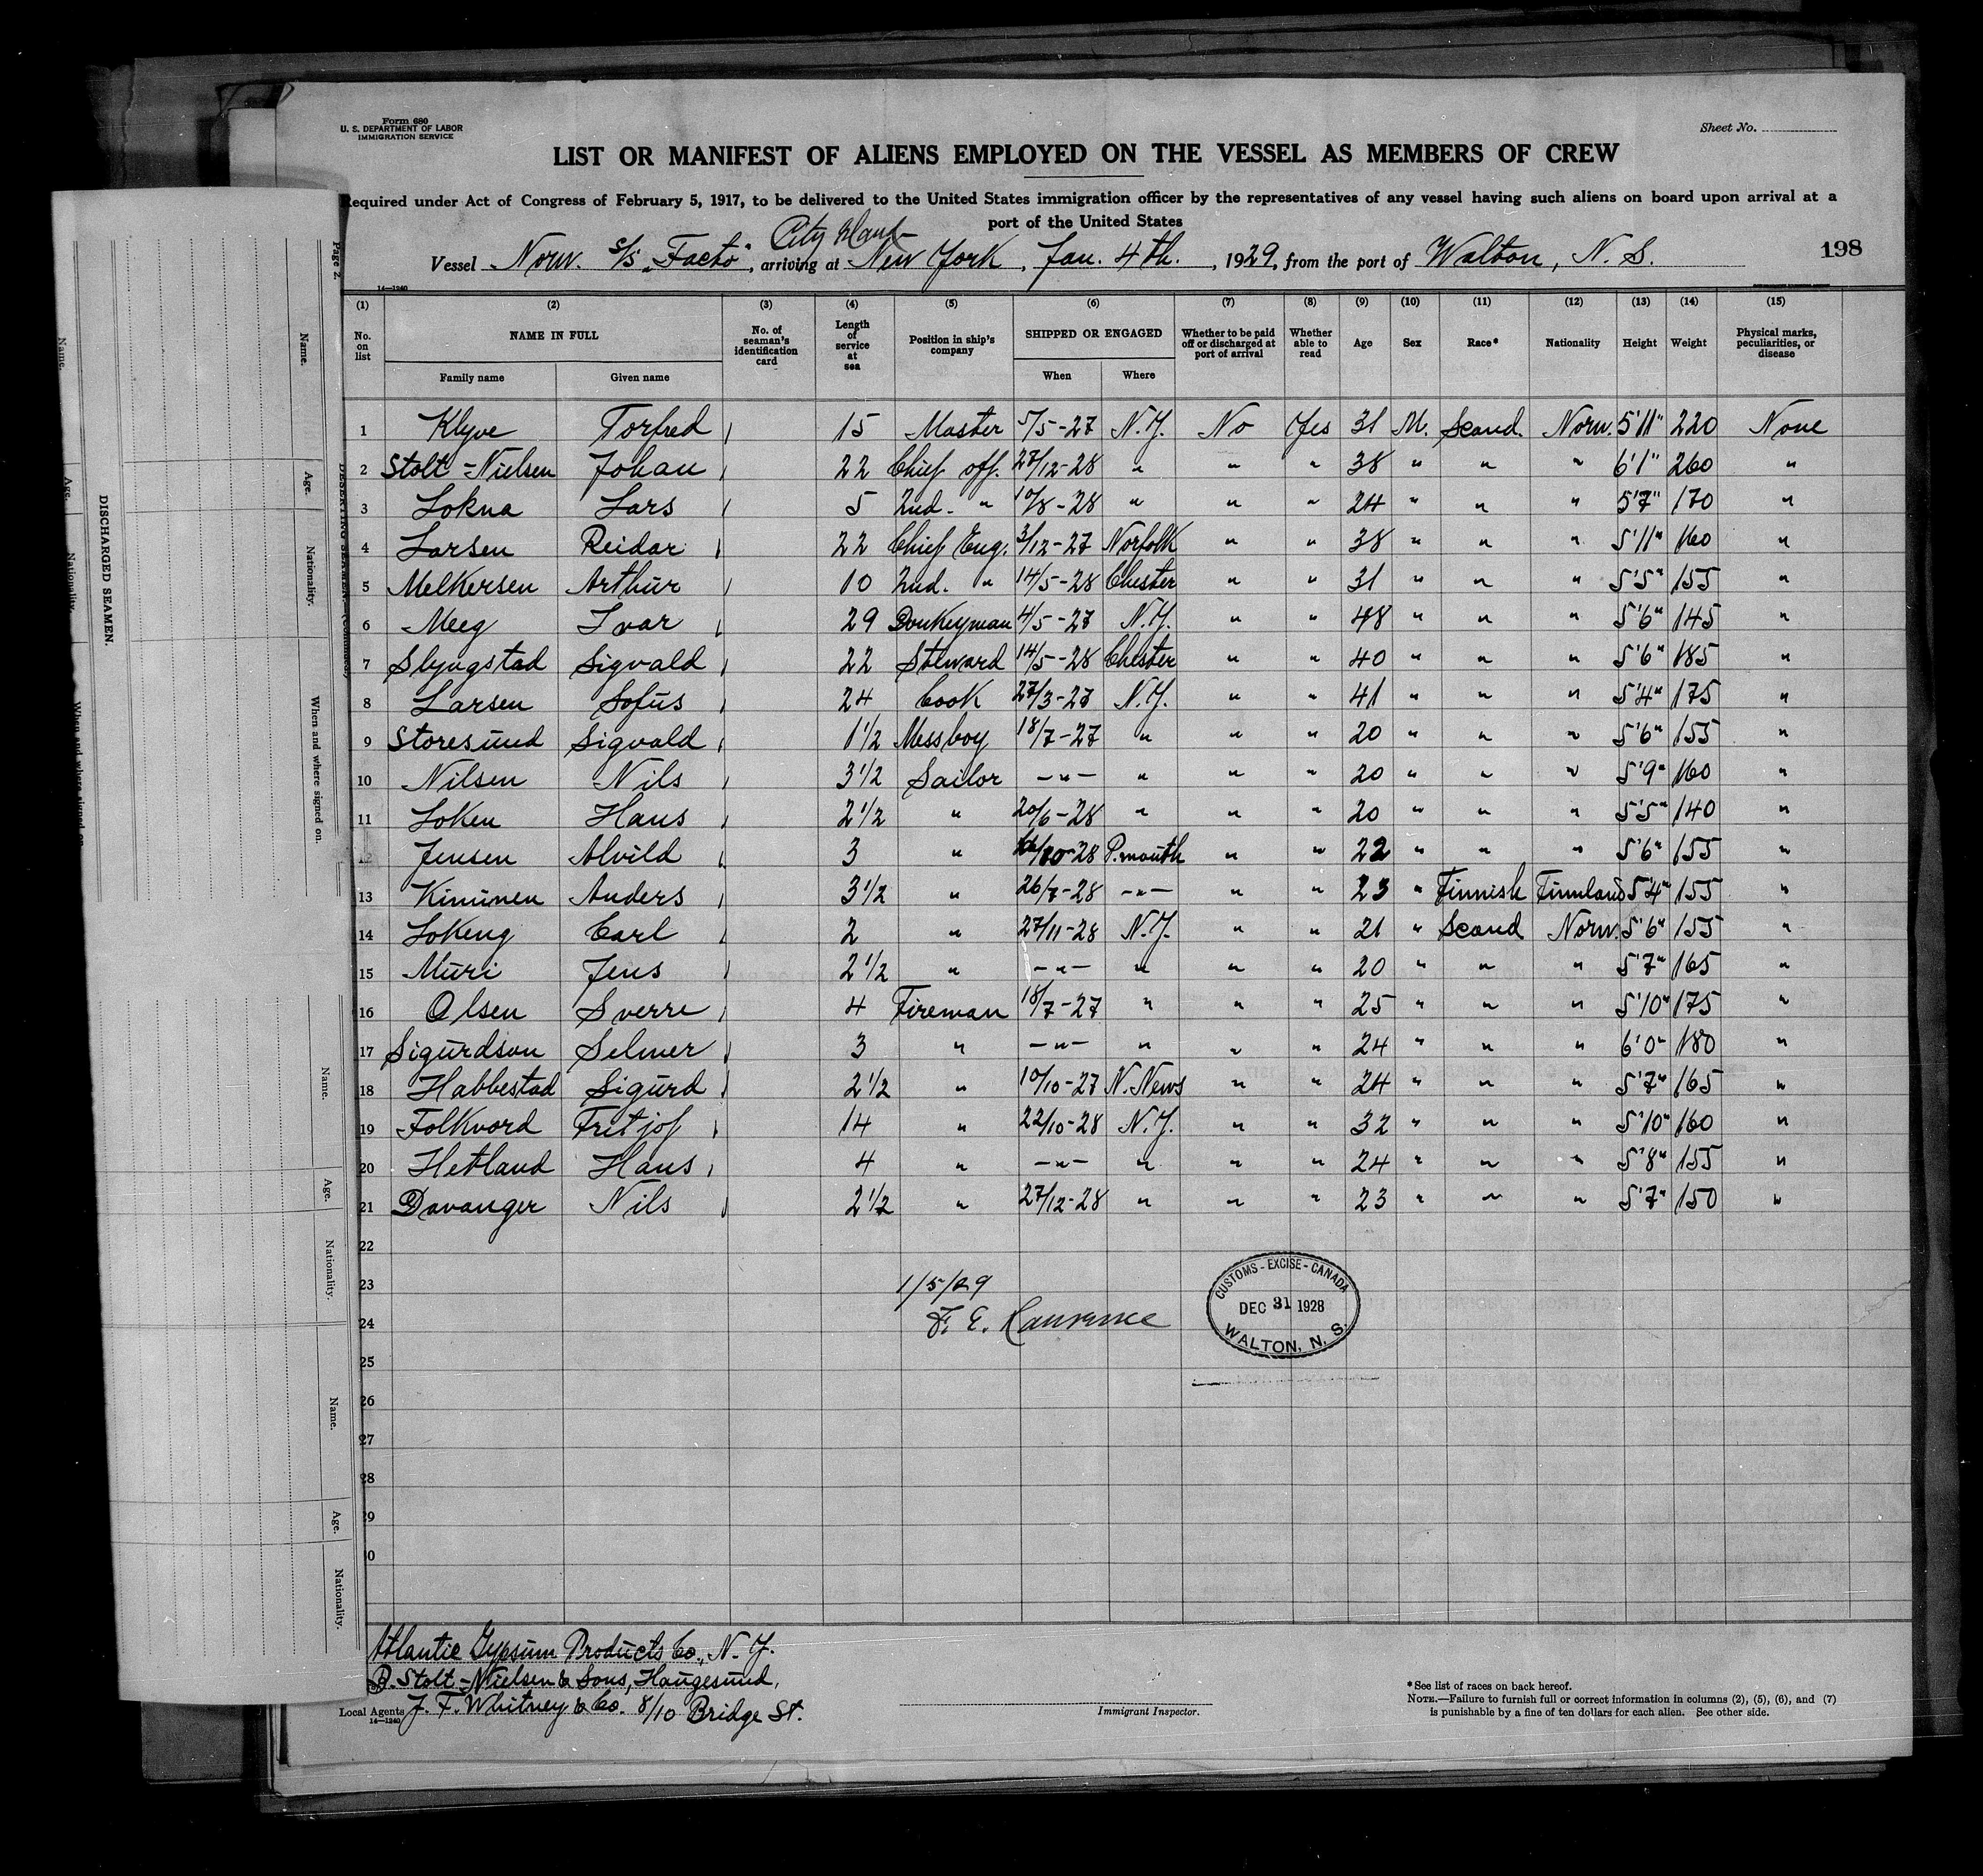 Form 680
U. S. DEPARTMENT OF LABOR
IMMIGRATION SERVICE
Sheet No.
LIST OR MANIFEST OF ALIENS EMPLOYED ON THE VESSEL AS MEMBERS OF CREW
Required under Act of Congress of February 5, 1917, to be delivered to the United States immigration officer by the representatives of any vessel having such aliens on board upon arrival at a
port of the United States
City Island
Vessel Norw. S/S "Facto", arriving at New York, Jan. 4th., 1929, from the port of Walton, N. S.
198
14—1240
(1) (2) (3) (4) (5) (6) (7) (8) (9) (10) (11) (12) (13) (14) (15)
No. on list NAME IN FULL Family name Given name No. of seaman's identification card Length of service at sea Position in ship's company SHIPPED OR ENGAGED When Where Whether to be paid off or discharged at port of arrival Whether able to read Age Sex Race* Nationality Height Weight Physical marks, peculiarities, or disease
1 Klyve Torfred 15 Master 5/5-27 N.Y. No Yes 31 M. Scand. Norw. 5'11" 220 None
2 Stolt-Nielsen Johan 22 Chief off. 27/12-28 " " " 38 " " " 6'1" 260 "
3 Lokna Lars 5 2nd. " 10/8-28 " " " 24 " " " 5'7" 170 "
4 Larsen Reidar 22 Chief Eng. 3/12-27 Norfolk " " 38 " " " 5'11" 160 "
5 Melkersen Arthur 10 2nd. " 14/5-28 Chester " " 31 " " " 5'5" 155 "
6 Meeg Ivar 29 Donkeyman 4/5-27 N.Y. " " 48 " " " 5'6" 145 "
7 Slyngstad Sigvald 22 Steward 14/5-28 Chester " " 40 " " " 5'6" 185 "
8 Larsen Sofus 24 Cook 27/3-27 N.Y. " " 41 " " " 5'4" 175 "
9 Storesund Sigvald 1 1/2 Messboy 18/7-27 " " " 20 " " " 5'6" 155 "
10 Nilsen Nils 3 1/2 Sailor -"- " " " 20 " " " 5'9" 160 "
11 Loken Hans 2 1/2 " 20/6-28 " " " 20 " " " 5'5" 140 "
12 Jensen Alvild 3 " /10-28 P.mouth " " 22 " " " 5'6" 155 "
13 Kimunen Anders 3 1/2 " 26/7-28 -"- " " 23 " Finnish Finnland 5'4" 155 "
14 Lokeng Carl 2 " 27/11-28 N.Y. " " 21 " Scand Norw. 5'6" 155 "
15 Muri Jens 2 1/2 " -"- " " " 20 " " " 5'7" 165 "
16 Olsen Sverre 4 Fireman 18/7-27 " " " 25 " " " 5'10" 175 "
17 Sigurdson Selmer 3 " -"- " " " 24 " " " 6'0" 180 "
18 Habbestad Sigurd 2 1/2 " 10/10-27 N. News " " 24 " " " 5'7" 165 "
19 Folkvord Fritjof 14 " 22/10-28 N.Y. " " 32 " " " 5'10" 160 "
20 Hetland Hans 4 " -"- " " " 24 " " " 5'8" 155 "
21 Davanger Nils 2 1/2 " 27/12-28 " " " 23 " " " 5'7" 150 "
22
23
24
25
26
27
28
29
30
1/5/29
F. E. Laurence
CUSTOMS - EXCISE - CANADA
DEC 31 1928
WALTON, N. S.
Atlantic Gypsum Products Co., N. Y.
B. Stolt-Nielsen & Sons, Haugesund,
Local Agents J. F. Whitney & Co. 8/10 Bridge St.
14—1240
Immigrant Inspector.
*See list of races on back hereof.
NOTE.—Failure to furnish full or correct information in columns (2), (5), (6), and (7)
is punishable by a fine of ten dollars for each alien. See other side.
Page 2.
DISCHARGED SEAMEN.
Name.
Age.
Nationality.
When and where signed on.
Name.
Age.
Nationality.
When and where signed on.
DESERTING SEAMEN
Name.
Age.
Nationality.
Name.
Age.
Nationality.